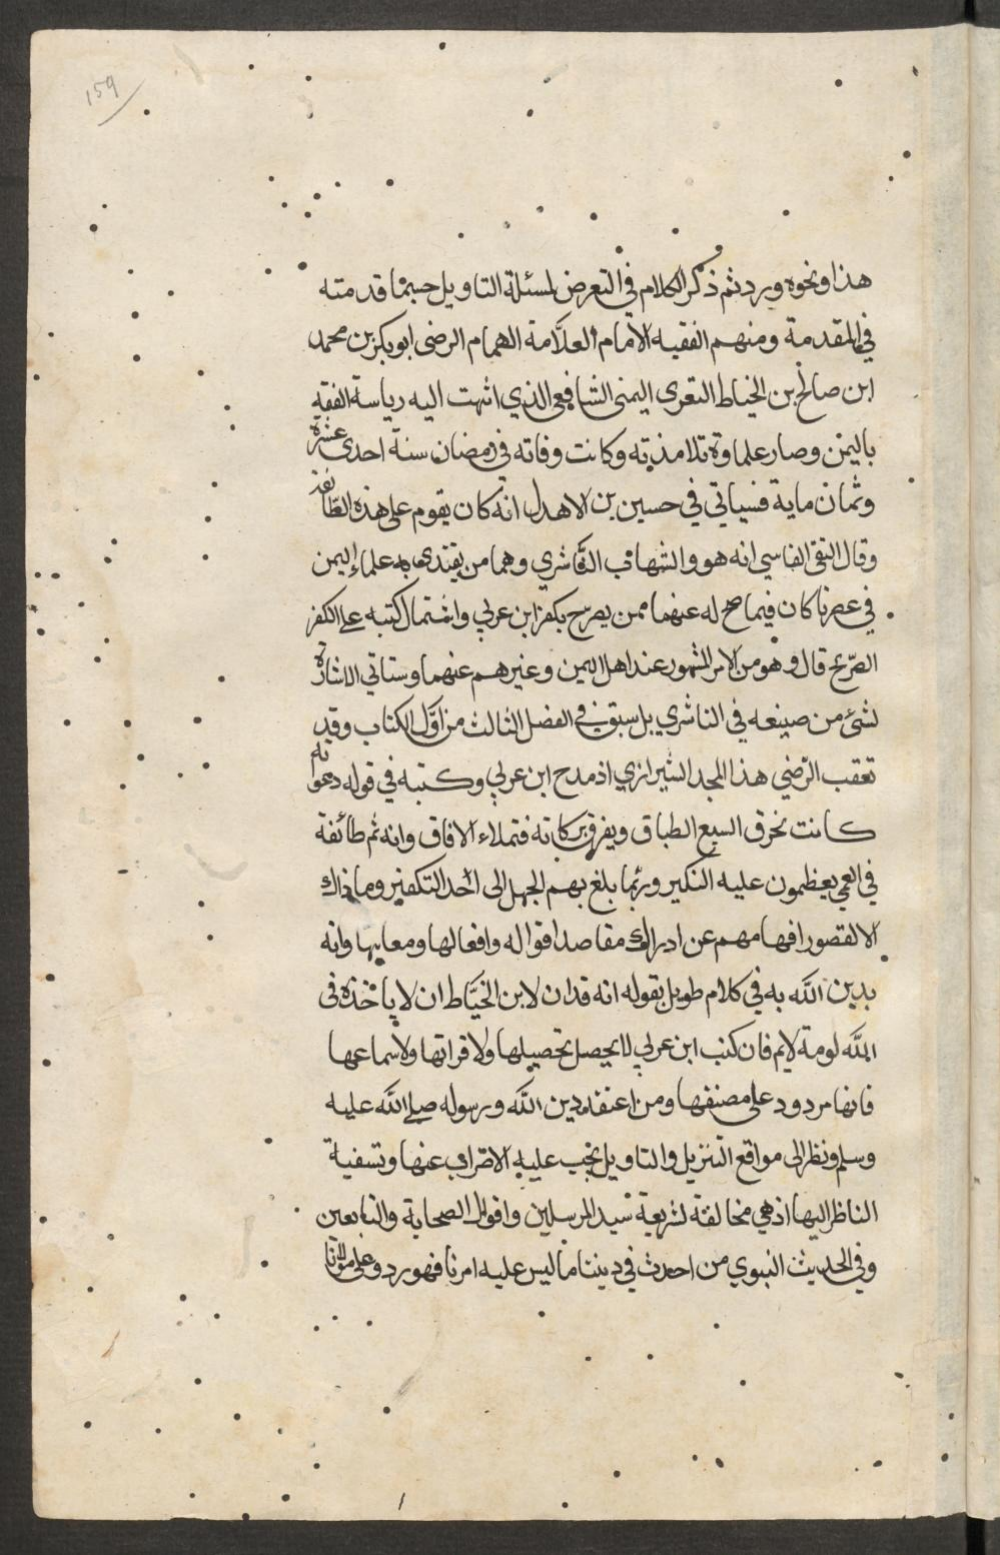 159
هذا ونحوه ويرد ثم ذكر الكلام في التعرض لمسئلة التاويل حسبما قدمته
في المقدمة ومنهم الفقيه الامام العلامة الهمام الرضى ابو بكر بن محمد
ابن صالح بن الخياط التعزى اليمنى الشافعي الذي انتهت اليه رياسة الفقه
باليمن وصار علماوة تلامذته وكانت وفاته في رمضان سنة احدى عشرة
وثمان ماية فسياتي في حسين بن الاهدل انه كان يقوم على هذه الطائفة
وقال التقى الفاسي انه هو والشهاب الناشري وهما من يقتدى به علماء اليمن
في عصرنا كان فيما صح له عنهما ممن يصرح بكفر ابن عربي واشتمال كتبه على الكفر
الصريح قال وهو من الامر المشهور عند اهل اليمن وغيرهم عنهما وستاتي الاشارة
لشئ من صنيعه في الناشري بل سبق في الفصل الثالث من اول الكتاب وقد
تعقب الرضي هذا المجد الشيرازي اذ مدح ابن عربي وكتبه في قوله دعواته
كانت تخرق السبع الطباق ويفرق بركاته فتملاء الافاق وانه ثم طائفة
في العمى يعظمون عليه النكير وربما بلغ بهم الجهل الى احد التكفير وما ذاك
الا لقصور افهامهم عن ادراك مقاصد اقواله وافعالها ومعايبها وانه
يدين الله به في كلام طويل بقوله انه قد ان لابن الخياط ان لا ياخذه فى
الله لومة لايم فان كتب ابن عربي لا يحصل تحصيلها ولا قراتها ولا سماعها
فانها مردود على مصنفها ومن اعتقد دين الله ورسوله صلى الله عليه
وسلم ونظر الى مواقع التنزيل والتاويل يجب عليه الاضراب عنها وتسفية
الناظر اليها اذ هي مخالفة لشريعة سيد المرسلين واقوال الصحابة والتابعين
وفي الحديث النبوي من احدث في ديننا ما ليس عليه امرنا فهو رد وعلى مولانا